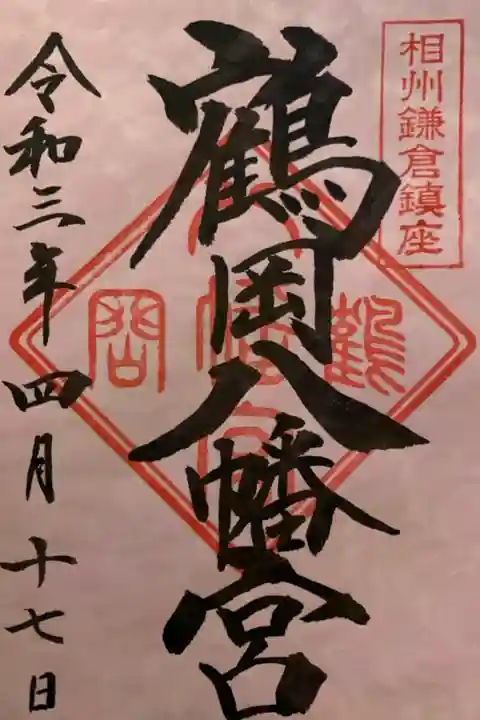 相州鎌倉鎮座
鶴岡八幡宮
令和三年四月十七日
鶴
岡